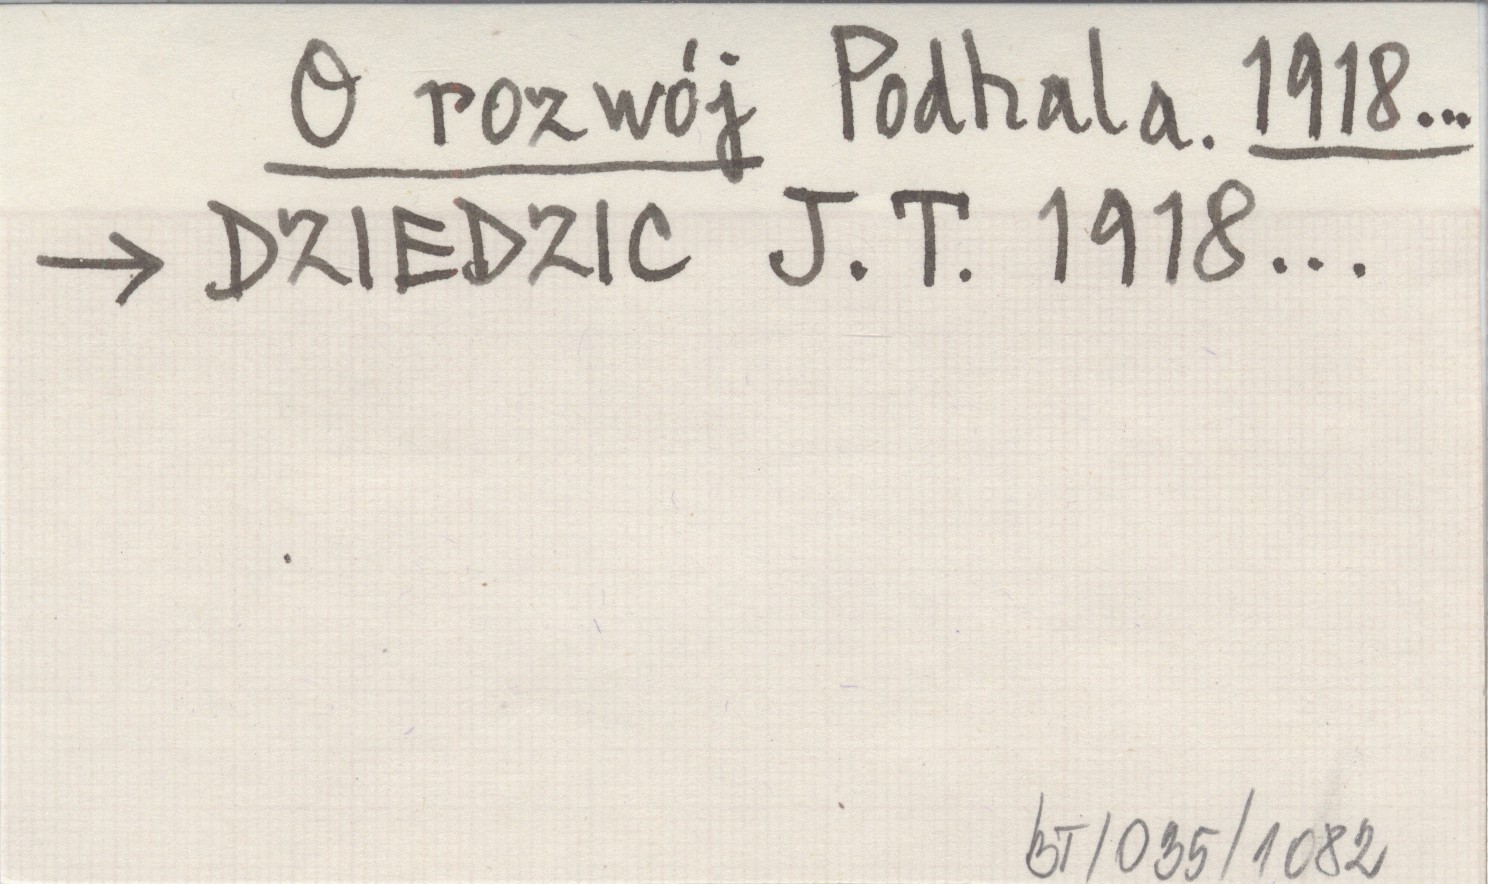 O rozwój Podhala. 1918...
→ DZIEDZIC J.T. 1918...
BT/035/1082